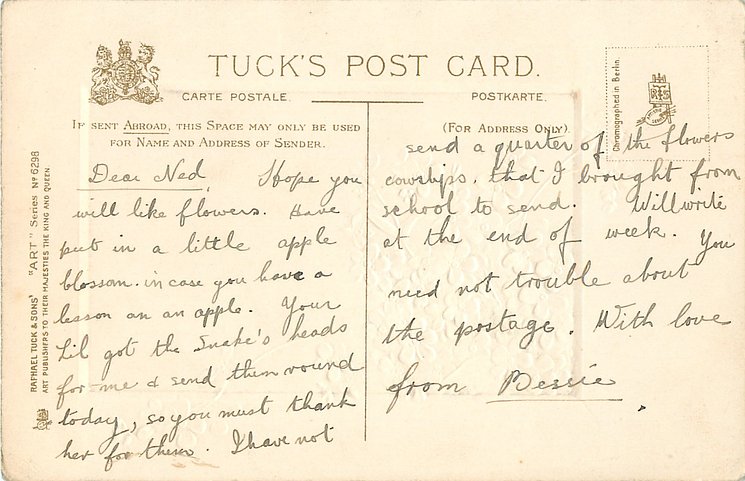 TUCK'S POST CARD.
CARTE POSTALE.
POSTKARTE.
IF SENT ABROAD, THIS SPACE MAY ONLY BE USED
FOR NAME AND ADDRESS OF SENDER.
(FOR ADDRESS ONLY).
Chromographed in Berlin.
RAPHAEL TUCK & SONS' "ART" Series No 6298
ART PUBLISHERS TO THEIR MAJESTIES THE KING AND QUEEN.
Dear Ned, I hope you
will like flowers. Have
put in a little apple
blossom. in case you have a
lesson on an apple. Your
Lil got the Snake's heads
for me & send them round
today, so you must thank
her for them. I have not
send a quarter of the flowers
cowslips. that I brought from
school to send. Will write
at the end of week. You
need not trouble about
the postage. With love
from Bessie